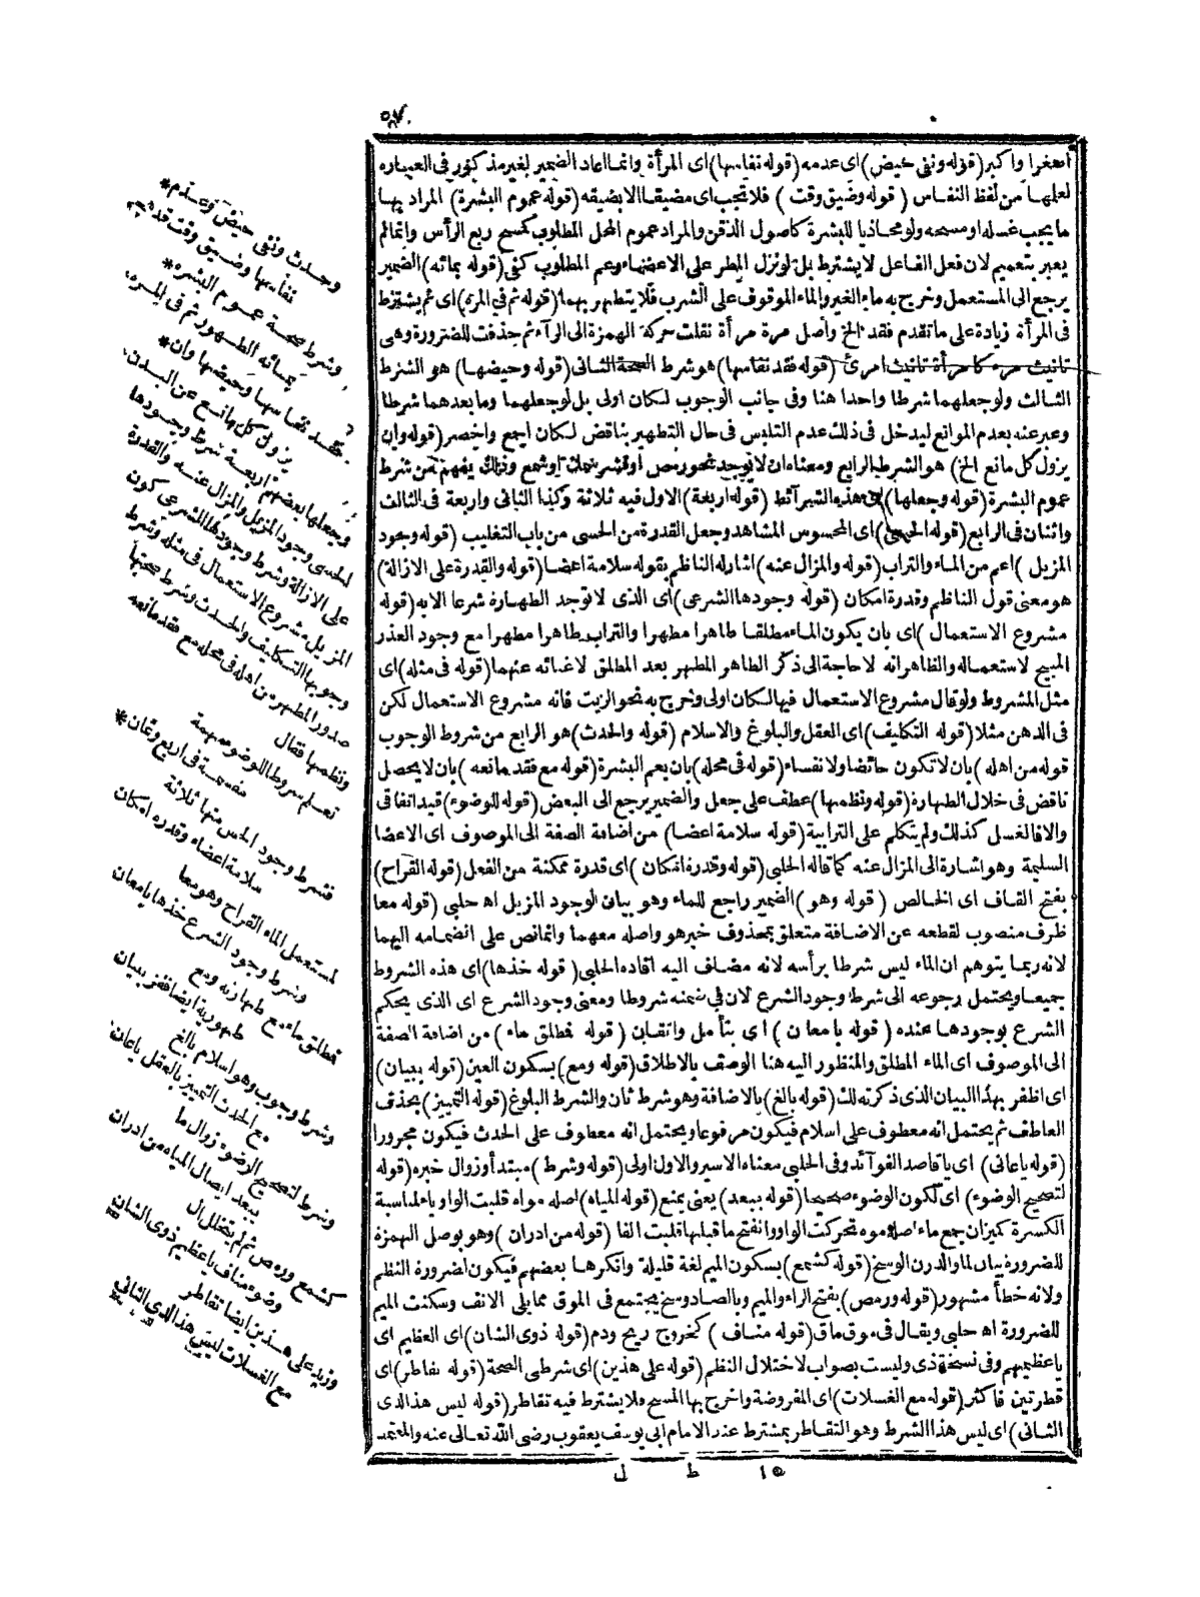 ٥٨٧
اصغرا واكبر (قوله ونفى حيض) اى عدمه (قوله نفاسها) اى المرأة وانما اعاد الضمير لغير مذكور فى العباره
لعلمها من لفظ النفاس (قوله وضيق وقت) فلا تجب اى مضيقا الا بضيقه (قوله عموم البشرة) المراد بها
ما يجب غسله او مسحه ولو محاذيا للبشرة كاصول الذقن والمراد عموم المحل المطلوب كمسح ربع الرأس وانما لم
يعبر بتعميم لان فعل الفاعل لا يشترط بل لو نزل المطر على الاعضاء وعم المطلوب كفى (قوله بمائه) الضمير
يرجع الى المستعمل وخرج به ماء الغير والماء الموقوف على الشرب فلا يتطهر بهما (قوله ثم في المره) اى ثم يشترط
فى المرأة زيادة على ما تقدم فقد الخ واصل مرة مرأة نقلت حركة الهمزة الى الراء ثم حذفت للضرورة وهى
تانيث مره كامرأة تانيث امرئ (قوله فقد نفاسها) هو شرط الصحة الثانى (قوله وحيضها) هو الشرط
الثالث ولو جعلهما شرطا واحدا هنا وفى جانب الوجوب لكان اولى بل لو جعلهما وما بعدهما شرطا
وعبر عنه بعدم الموانع ليدخل فى ذلك عدم التلبس فى حال التطهير بناقض لكان اجمع واخصر (قوله وان
يزول كل مانع الخ) هو الشرط الرابع ومعناه ان لا يوجد نحو رمص او قشر سمك او شمع وذلك يفهم من شرط
عموم البشرة (قوله وجعلها) اى هذه الشرآئط (قوله اربعة) الاول فيه ثلاثة وكذا الثانى واربعة فى الثالث
واثنان فى الرابع (قوله الحسى) اى المحسوس المشاهد وجعل القدرة من الحسى من باب التغليب (قوله وجود
المزيل) اعم من الماء والتراب (قوله والمزال عنه) اشار له الناظم بقوله سلامة اعضا (قوله والقدرة على الازالة)
هو معنى قول الناظم وقدرة امكان (قوله وجودها الشرعى) اى الذى لا توجد الطهارة شرعا الا به (قوله
مشروع الاستعمال) اى بان يكون الماء مطلقا طاهرا مطهرا والتراب طاهرا مطهرا مع وجود العذر
المبيح لاستعماله والظاهر انه لا حاجة الى ذكر الطاهر المطهر بعد المطلق لاغنائه عنهما (قوله فى مثله) اى
مثل المشروط ولو قال مشروع الاستعمال فيها لكان اولى وخرج به نحو الزيت فانه مشروع الاستعمال لكن
فى الدهن مثلا (قوله التكليف) اى العقل والبلوغ والاسلام (قوله والحدث) هو الرابع من شروط الوجوب
قوله من اهله) بان لا تكون حائضا ولا نفساء (قوله فى محله) بان يعم البشرة (قوله مع فقد مانعه) بان لا يحصل
ناقض فى خلال الطهارة (قوله ونظمها) عطف على جعل والضمير يرجع الى البعض (قوله للوضوء) قيد اتفاقى
والا فالغسل كذلك ولم يتكلم على الترابية (قوله سلامة اعضا) من اضافة الصفة الى الموصوف اى الاعضا
السليمة وهو اشارة الى المزال عنه كما قاله الحلبى (قوله وقدرة امكان) اى قدرة ممكنة من الفعل (قوله القراح)
بفتح القاف اى الخالص (قوله وهو) الضمير راجع للماء وهو بيان لوجود المزيل اه حلبى (قوله معا
ظرف منصوب لقطعه عن الاضافة متعلق بمحذوف خبر هو واصله معهما وانما نص على انضمامه اليهما
لانه ربما يتوهم ان الماء ليس شرطا برأسه لانه مضاف اليه افاده الحلبى (قوله خذها) اى هذه الشروط
جميعا ويحتمل رجوعه الى شرط وجود الشرع لان فى ضمنه شروطا ومعنى وجود الشرع اى الذى يحكم
الشرع بوجودها عنده (قوله بامعان) اى بتأمل واتقان (قوله فمطلق ماء) من اضافة الصفة
الى الموصوف اى الماء المطلق والمنظور اليه هنا الوصف بالاطلاق (قوله ومع) بسكون العين (قوله ببيان)
اى اظفر بهذا البيان الذى ذكرته لك (قوله بالغ) بالاضافة وهو شرط ثان والشرط البلوغ (قوله التمييز) بحذف
العاطف ثم يحتمل انه معطوف على اسلام فيكون مرفوعا ويحتمل انه معطوف على الحدث فيكون مجرورا
(قوله ياعانى) اى يا قاصد الفوآئد وفى الحلبى معناه الاسير والاول اولى (قوله وشرط) مبتدأ وزوال خبره (قوله
لتصحيح الوضوء) اى لكون الوضوء صحيحا (قوله يبعد) يعنى يمنع (قوله المياه) اصله مواه قلبت الواو ياء لمناسبة
الكسرة كميزان جمع ماء اصله موه تحركت الواو وانفتح ما قبلها قلبت الفا (قوله من ادران) وهو بوصل الهمزة
للضرورة بيان لما والدرن الوسخ (قوله كشمع) بسكون الميم لغة قليلة وانكرها بعضهم فيكون لضرورة النظم
ولانه خطأ مشهور (قوله ورمص) بفتح الراء والميم وبالصاد وسخ يجتمع فى الموق مما يلى الانف وسكنت الميم
للضرورة اه حلبى ويقال فى موق ماق (قوله مناف) كخروج ريح ودم (قوله ذوى الشان) اى العظيم اى
يا عظيمهم وفى نسخة ذى وليست بصواب لاختلال النظم (قوله على هذين) اى شرطى الصحة (قوله تقاطر) اى
قطرتين فاكثر (قوله مع الغسلات) اى المفروضة واخرج بها المسح فلا يشترط فيه تقاطر (قوله ليس هذا لدى
الثانى) اى ليس هذا الشرط وهو التقاطر بمشترط عند الامام ابى يوسف يعقوب رضى الله تعالى عنه والمعتمد
١٥ ط ل
وحدث ونفى حيض وعدم*
نفاسها وضيق وقت قد
وشرط صحة عموم البشره*
بمائه الطهور ثم فى المره
فقد نفاسها وحيضها وان*
يزول كل مانع عن البدن
وجعلها بعضهم اربعة شرط وجودها
الحسى وجود المزيل والمزال عنه والقدرة
على الازالة وشرط وجودها الشرعى كون
المزيل مشروع الاستعمال فى مثله وشرط
وجوبها التكليف والحدث وشرط صحتها
صدور المطهر من اهله فى محله مع فقد مانعه
ونظمها فقال
تعلم شروطا للوضوء مهمة
مقسمة فى اربع وثمان*
فشرط وجود الحس منها ثلاثة
سلامة اعضاء وقدرة امكان
لمستعمل الماء القراح وهو معا
وشرط وجود الشرع خذها بامعان
فمطلق ماء مع طهارته ومع
طهورية ايضا ففز ببيان
وشرط وجوب وهو اسلام بالغ
مع الحدث التمييز بالعقل ياعان
وشرط لتصحيح الوضوء زوال ما
يبعد ايصال المياه من ادران
كشمع ورمص ثم لم يتخلل ال
وضوء مناف يا عظيم ذوى الشان
وزيد على هذين ايضا تقاطر
مع الغسلات ليس هذا لدى الثانى